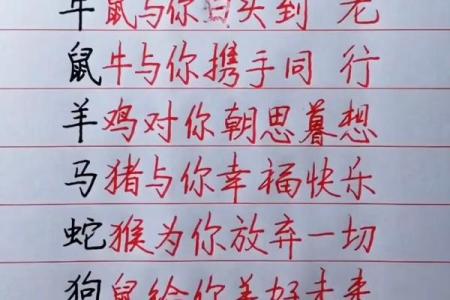 牛鼠与你白头到老
鼠牛与你携手同行
羊鸡对你朝思暮想
马猪与你幸福快乐
蛇猴为你放弃一切
狗鼠给你美好未来